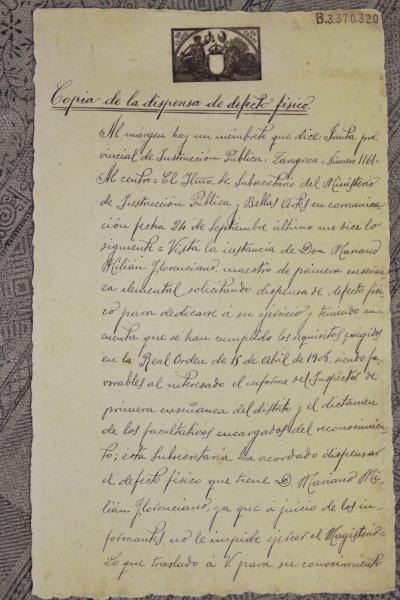 B.3.370.320
Copia de la dispensa de defecto físico.
Al margen hay un membrete que dice: Junta pro
vincial de Instrucción Pública. Zaragoza = Número 1161 =
Al centro = El Iltmo. Sr. Subsecretario del Ministerio
de Instrucción Pública y Bellas Artes en comunica
ción fecha 24 de Septiembre último me dice lo
siguiente = Vista la instancia de Don Mariano
Milián Florenciano, maestro de primera enseñan
za elemental solicitando dispensa de defecto físi
co para dedicarse á su ejercicio y teniendo en
cuenta que se han cumplido los requisitos exigidos
en la Real Orden de 15 de Abril de 1908, siendo fa
vorables al interesado el informe del Inspector de
primera enseñanza del distrito y el dictamen
de los facultativos encargados del reconocimien
to; esta Subsecretaria ha acordado dispensar
el defecto físico que tiene D. Mariano Mi
lián Florenciano, ya que a juicio de los in
formantes, no le impide ejercer el Magisterio =
Lo que traslado á V. para su conocimiento